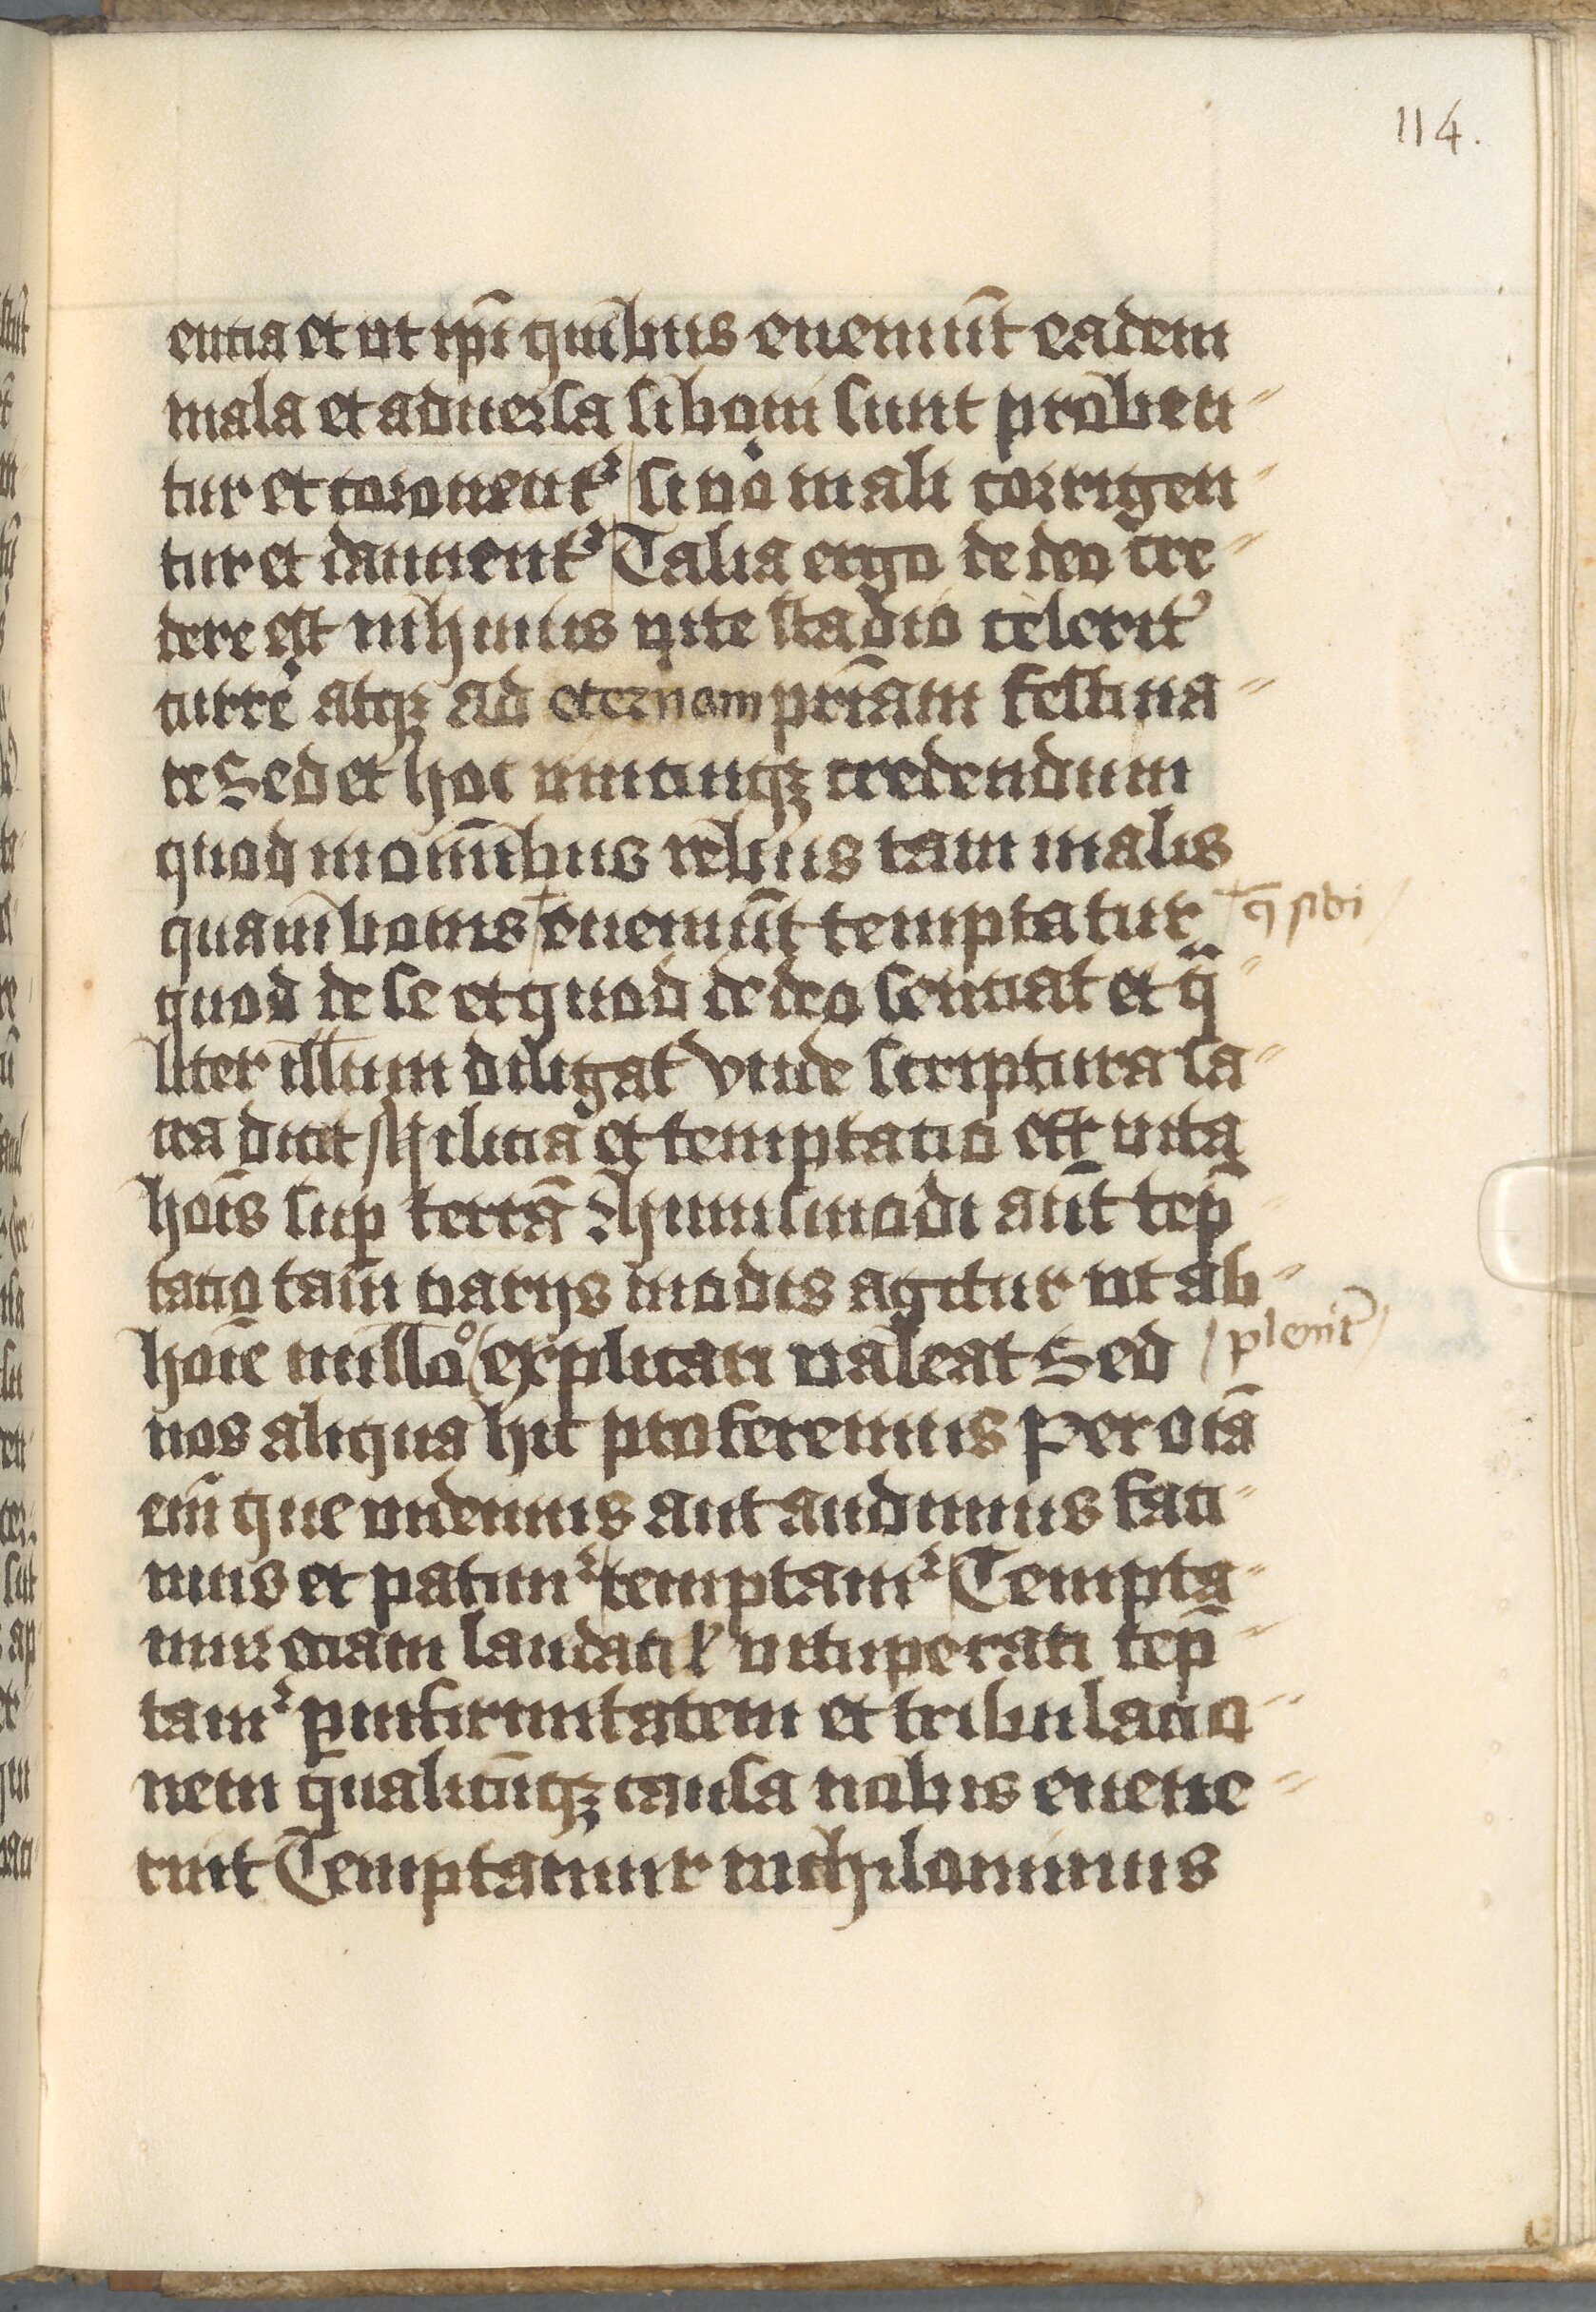 114.
entia et ut ip̄i quibus eueniu̅t eadem
mala et aduersa si boni sunt proben⸗
tur et coronent᷑ si ůo mali corrigen⸗
tur et dampnent᷑ Talia ergo de deo cre⸗
dere est in huius uite stadio celerit᷑
curre̅ atqꝫ ad eternam pr̄iam festina⸗
re Sed et hoc unicuiqꝫ credendum
quod in om̅ibus rebus tam malis
quam bonis + eueniu̅t temptatur + q̄ sibi
quod de se et quod de deo sentiat et q̄⸗
liter illum diligat Vnde scriptura sa⸗
cra dicit Milicia et temptatio est uita
ho̅is sup̲ terra̅ huiusmodi aut̅ te̅p⸗
tatio tam uarijs modis agitur ut ab⸗
ho̅ie nullo explicari ualeat Sed plenit᷑
nos aliqua hic proferemus Per o̅ia
eni̅ que uidemus aut audimus faci⸗
mus et patim᷑ temptam᷑ Tempta⸗
mur etiam laudati ł uituperati te̅p⸗
tam᷑ ꝑ infirmitatem et tribulacio⸗
nem qualicu̅qꝫ causa nobis euene⸗
rint Temptamur nichilominus